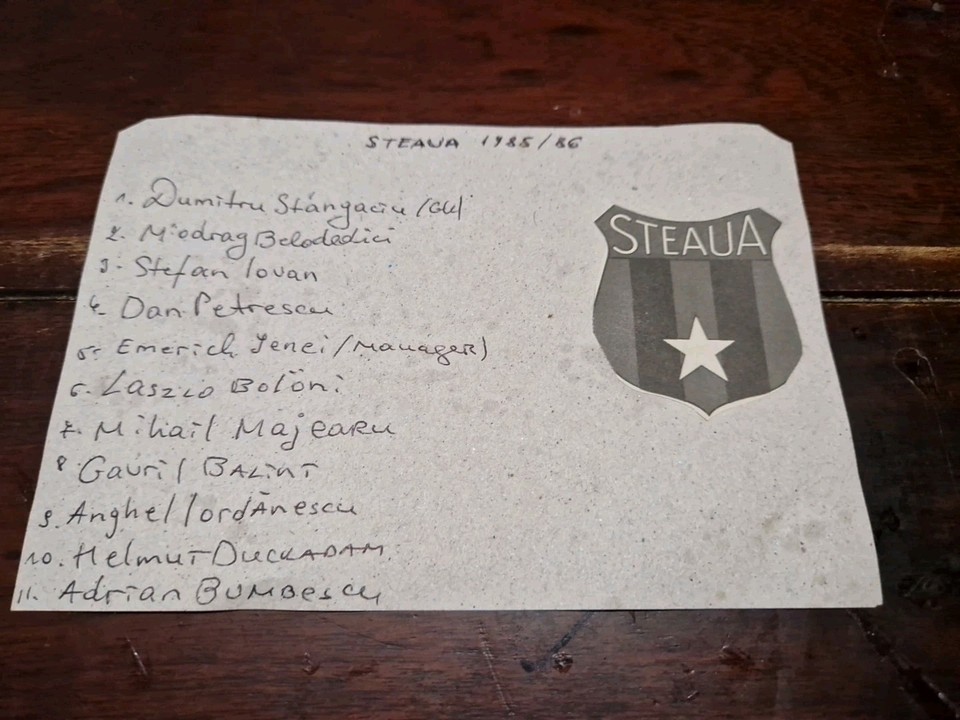 STEAUA 1985/86
1. Dumitru Stângaciu (GK)
2. Miodrag Belodedici
3. Stefan Iovan
4. Dan Petrescu
5. Emerich Jenei (Manager)
6. Laszlo Bölöni
7. Mihail Majearu
8 Gavril BALINT
9. Anghel IordĂnescu
10. Helmut DUCKADAM
11. Adrian BUMBescu
STEAUA